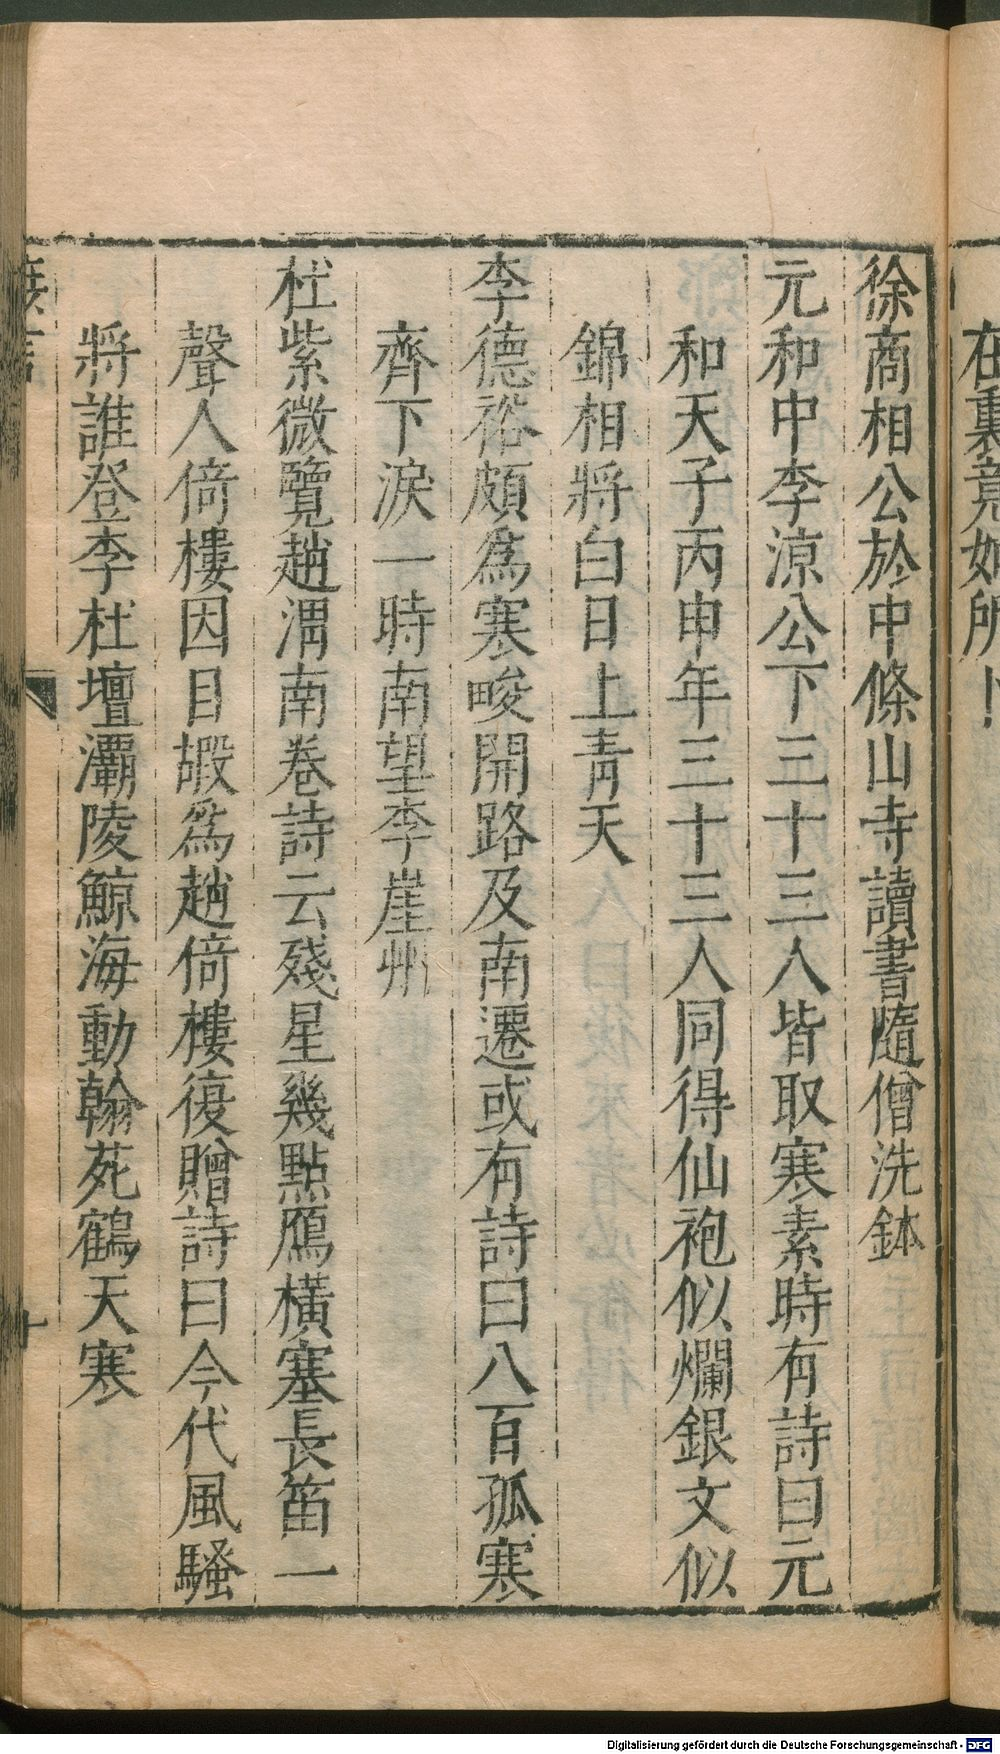 在裏竟如所卜
徐商相公於中條山寺讀書隨僧洗鉢
元和中李涼公下三十三人皆取寒素時有詩曰元
和天子丙申年三十三人同得仙袍似爛銀文似
錦相將白日上青天
李德裕頗爲寒畯開路及南遷或有詩曰八百孤寒
齊下淚一時南望李崖州
杜紫微覽趙渭南卷詩云殘星幾點鴈橫塞長笛一
聲人倚樓因目嘏爲趙倚樓復贈詩曰今代風騷
將誰登李杜壇灞陵鯨海動翰苑鶴天寒
摭言
十
Digitalisierung gefördert durch die Deutsche Forschungsgemeinschaft - DFG